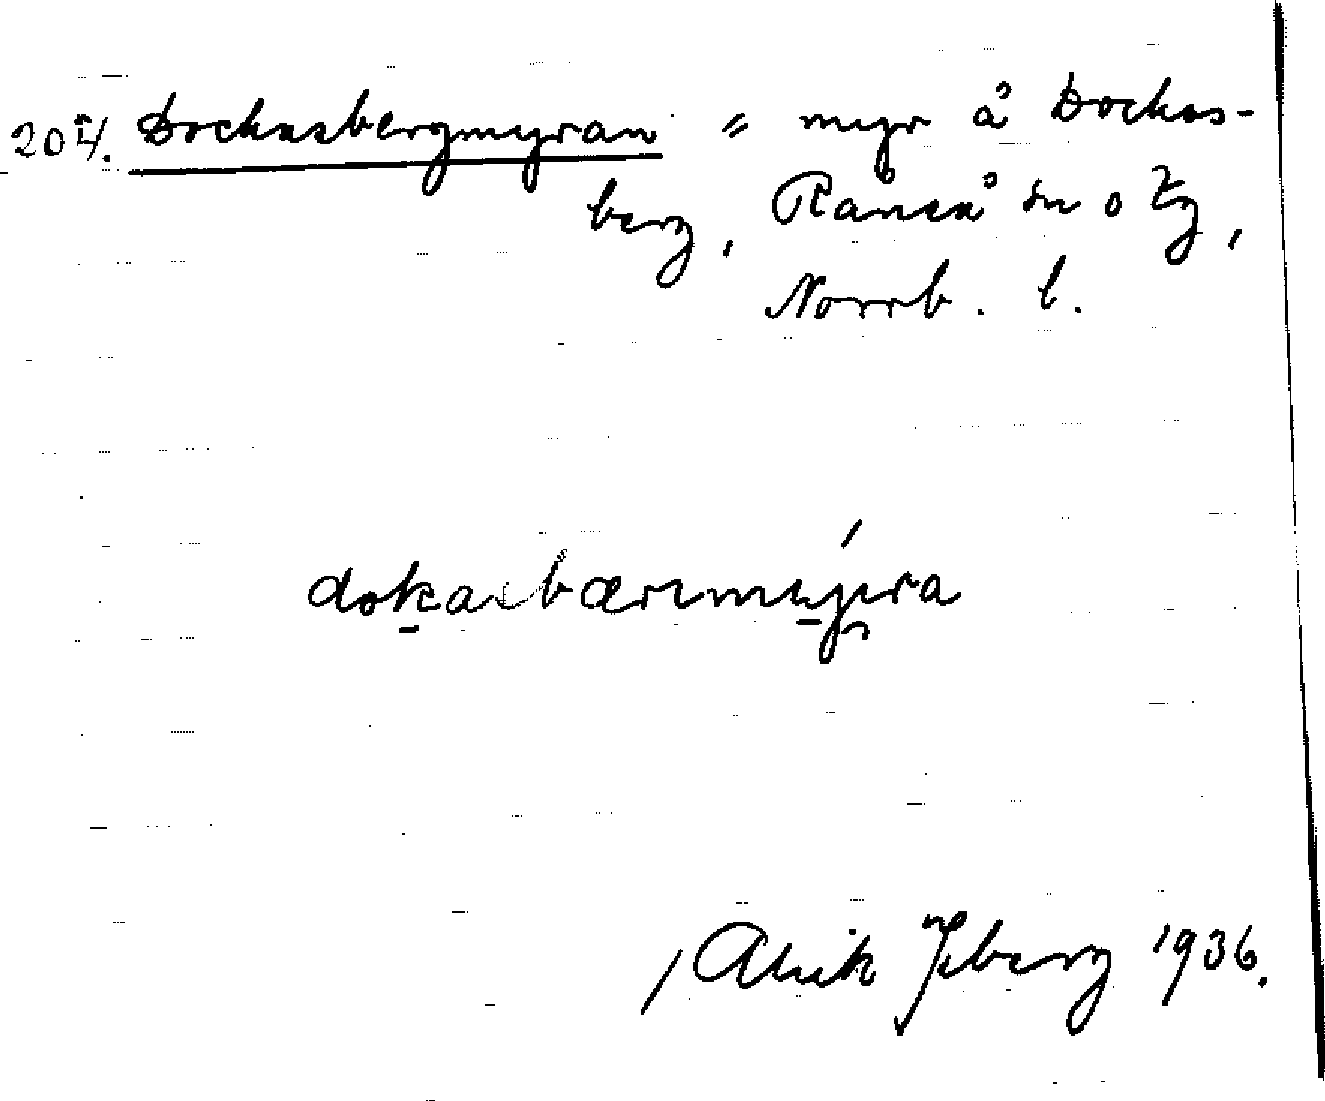 204. Docksasbergmyran = myr å Dockas-
berg, Råneå sn o tg,
Norrb. l.
Alrik Iberg 1936.